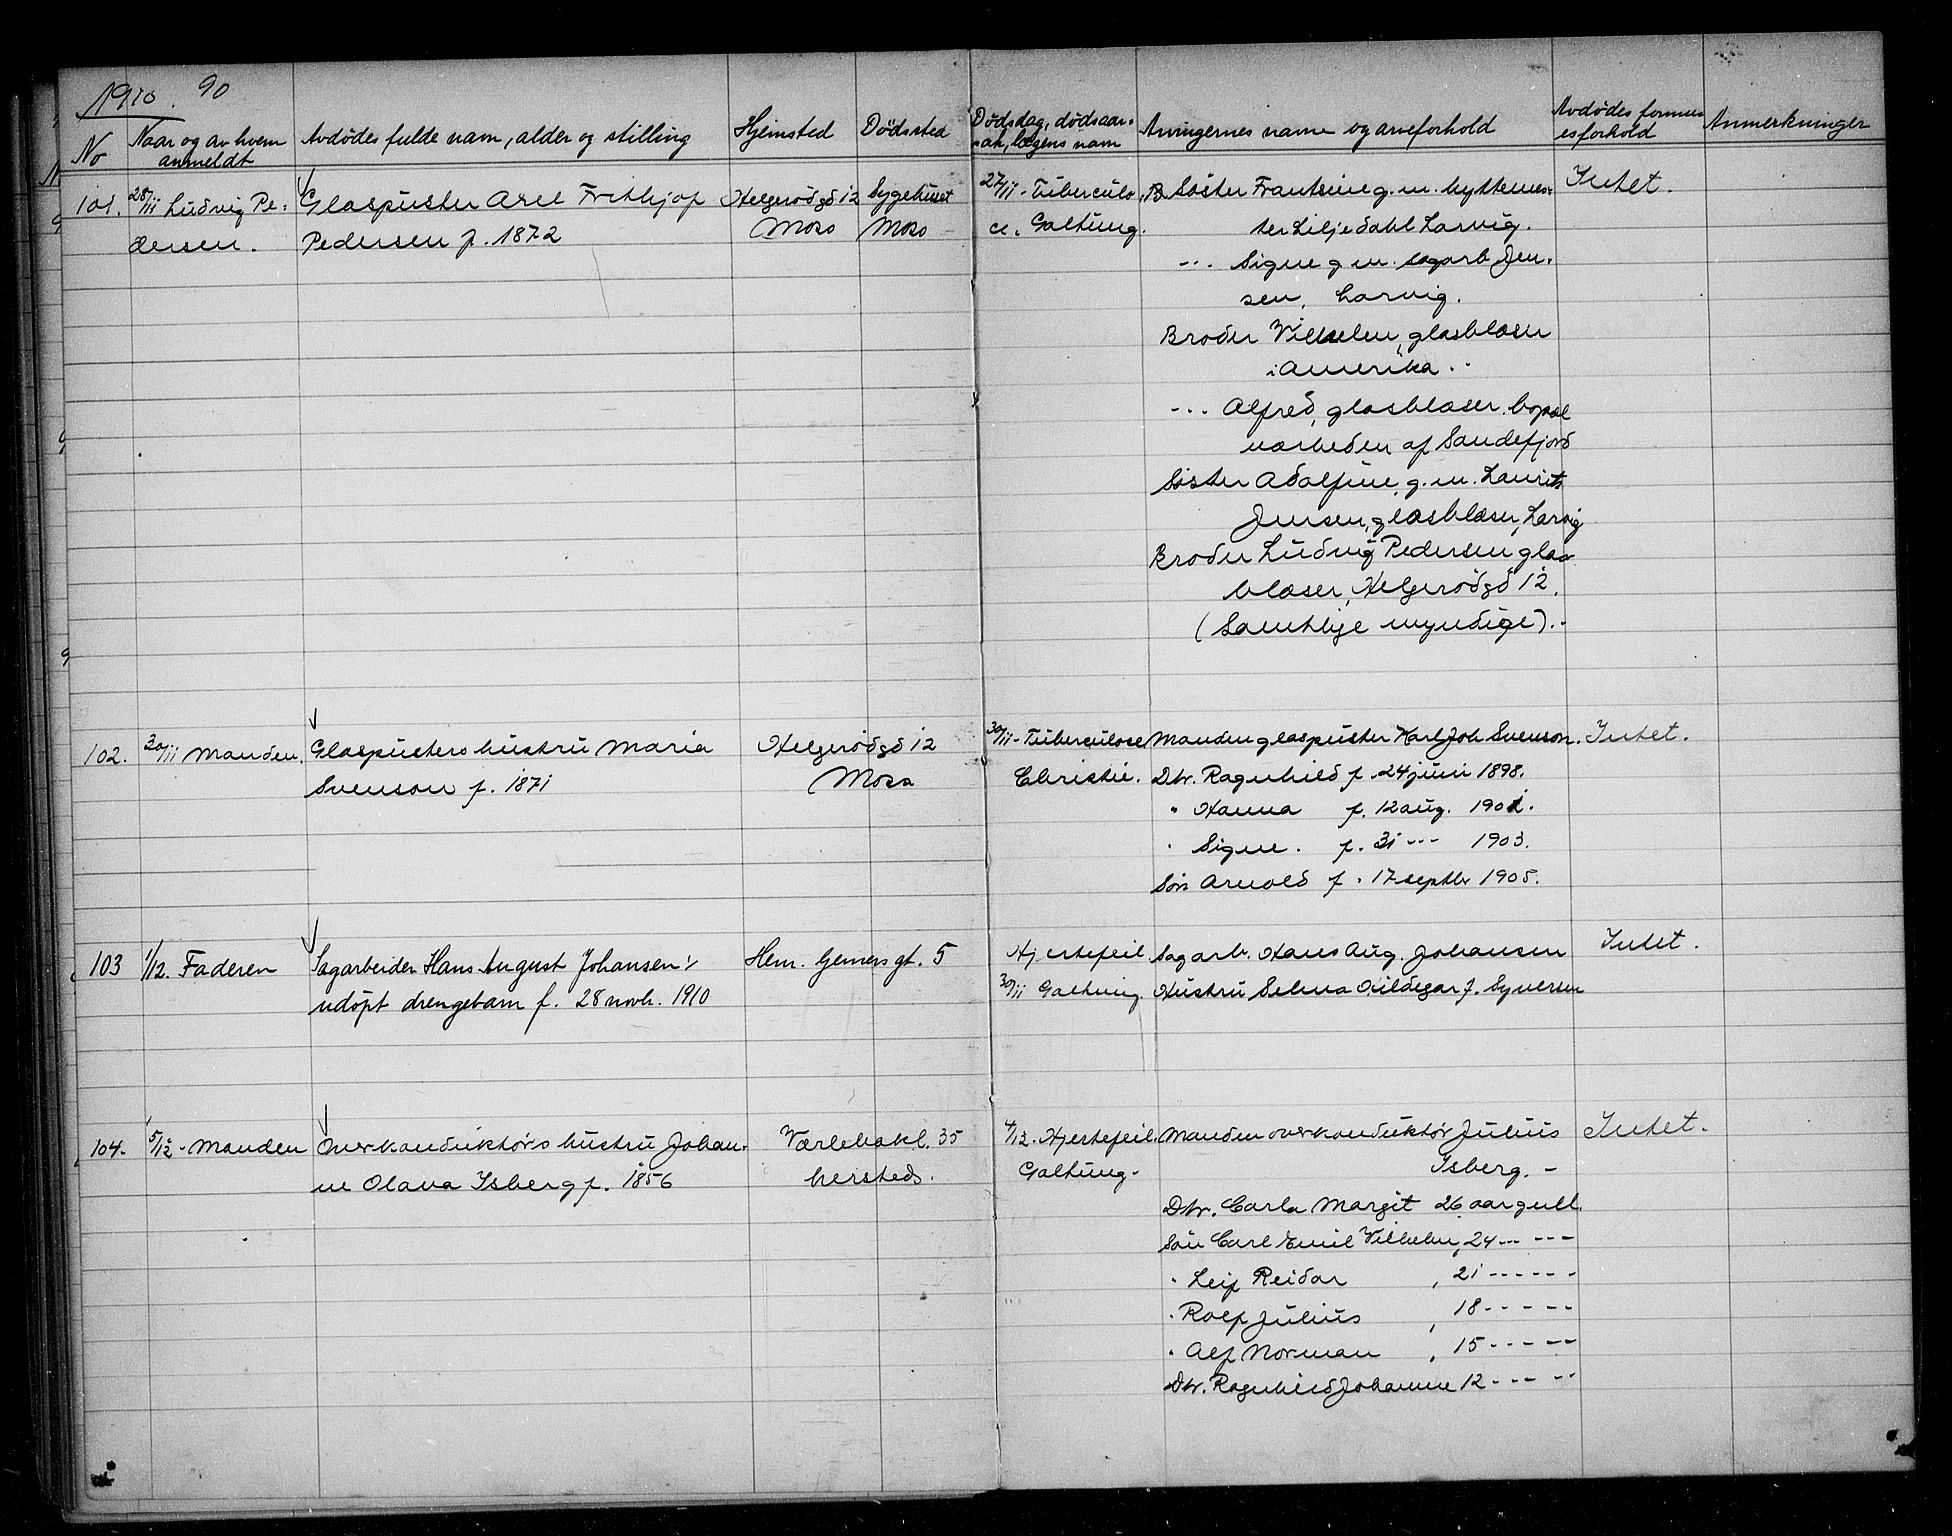 1910. 90
No
Naar og av hvem anmeldt
Avdödes fulde navn, alder og stilling
Hjemsted
Dödssted
Dödsdag, dödsaar-
sak, lægens navn
Arvingernes navne og arveforhold
Avdödes formu-
esforhold
Anmerkninger
101. 28/11 Ludvig Pe-
dersen.
Glaspuster Axel Frithjof
Pedersen f. 1872
Helgerödgd 12
Moss
Sygehuset
Moss
27/11 - Tuberculo
Galtung.
Söster Frantsine g. m. hyttemes-
ter Liljedahl Larvig.
-.. Signe g m. sagarb Jen-
sen, Larvig.
Broder Vilhelm, glasblæser
i Amerika.
-.. Alfred, glasblæser, bopæl
nærheden af Sandefjord
Söster Adolfine, g. m. Laurits
Jensen, glasblæser, Larvig
Broder Ludvig Pedersen glas
blæser, Helgerödgd 12.
(Samtlige myndige).
102. 30/11 Manden
Glaspusters hustru Maria
Svenson f. 1871
Helgerödgd 12
Moss
30/11 - Tuberculose
Christie.
Manden glaspuster Karl Joh Svenson.
Dtr. Ragnhild f. 24 juni 1898.
" Hanna f. 12 aug. 1901.
" Signe. f. 31 --- 1903.
Sön Arnold f. 17 septbr 1905.
Intet.
103 1/12. Faderen
Sagarbeider Hans August Johansen's
udöpt drengebarn f. 28 novb. 1910
Hen. Gerners gt. 5
Hjertefeil
30/11 Galtung.
Sagarb. Hans Aug. Johansen
Hustru Selma Hildegar f. Syversen
Intet.
104. 5/12 - Manden
Overkonduktörs hustru Johan-
ne Olava Isberg f. 1856
Værlebakk. 35
hersteds.
4/12. Hjertefeil.
Galtung.
Manden overkonduktör Julius
Isberg. -
Dtr. Carla Margit 26 aar gull.
Sön Carl Emil Vilhelm, 24 --- ---
" Leif Reidar, 21 ------
" Rolf Julius, 18 -----
" Alf Norman, 15 -----
Dtr. Ragnhild Johanne 12 --- --
Intet.
Intet.